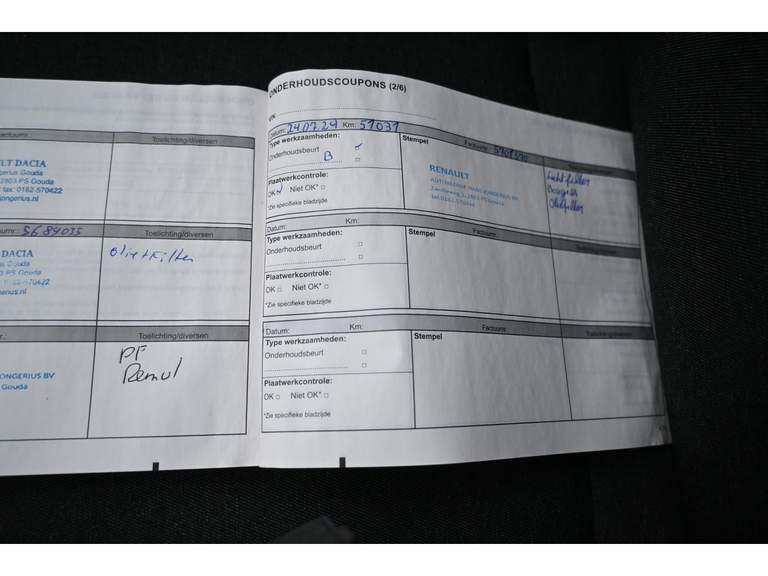 Toelichting/diversen
LT DACIA
ngerius Gouda
2803 PS Gouda
fax: 0182-570422
jongerius.nl
5689035
Toelichting/diversen
DACIA
Gouda
PS Gouda
olie+filter
Toelichting/diversen
ONGERIUS BV
Gouda
PF
Remul
ONDERHOUDSCOUPONS (2/6)
VIN:
Datum: 24.07.24 Km: 57037
Type werkzaamheden:
Onderhoudsbeurt
B
Plaatwerkcontrole:
OK Niet OK*
*Zie specifieke bladzijde
Stempel
Factuurnr.:
RENAULT
Luchtfilter
Oliefilter
Datum: Km:
Type werkzaamheden:
Onderhoudsbeurt
Plaatwerkcontrole:
OK Niet OK*
*Zie specifieke bladzijde
Stempel
Factuurnr.:
Toelichting/diversen
Datum: Km:
Type werkzaamheden:
Onderhoudsbeurt
Plaatwerkcontrole:
OK Niet OK*
*Zie specifieke bladzijde
Stempel
Factuurnr.:
Toelichting/diversen